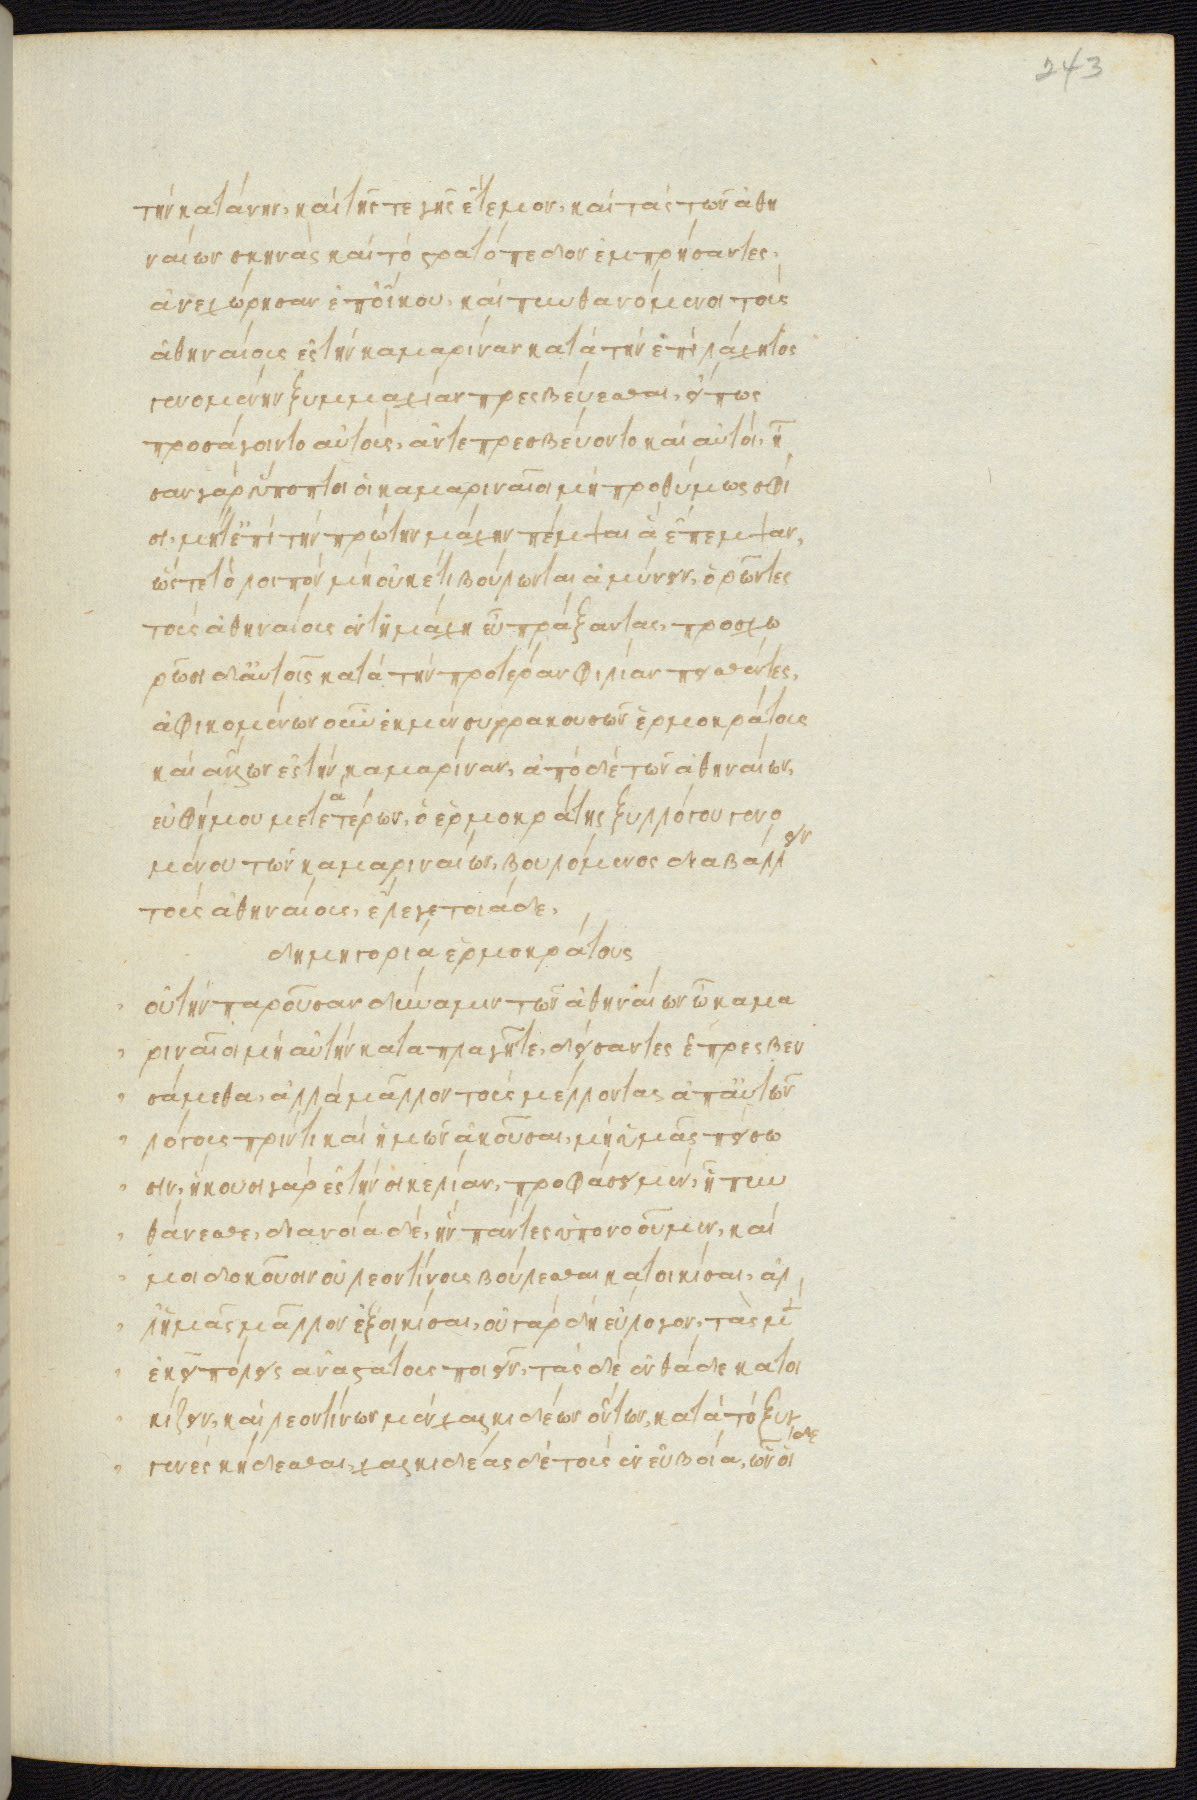 243
τὴν κατάνην, καὶ τῆς τε γῆς ἔτεμον, καὶ τὰς τῶν ἀθη
ναίων σκηνὰς καὶ τὸ στρατόπεδον ἐμπρήσαντες,
ἀνεχώρησαν ἐπ᾽ οἴκου, καὶ πυνθανόμενοι τοὺς
ἀθηναίους ἐς τὴν καμαρίναν κατὰ τὴν ἐπὶ λάχητος
γενομένην ξυμμαχίαν πρεσβεύεσθαι, εἴ πως
προσάγοιντο αὐτοὺς, ἀντεπρεσβεύοντο καὶ αὐτοί, ἦ
σαν γὰρ ὕποπτοι οἱ καμαριναῖοι μὴ προθύμως σφί
σι, μήτ᾽ ἐπὶ τὴν πρώτην μάχην πέμψαι ἃ ἔπεμψαν,
ὥς τε τὸ λοιπὸν μὴ οὐκέτι βούλωνται ἀμύνειν, ὁρῶντες
τοὺς ἀθηναίους ἐν τῇ μάχῃ εὖ πράξαντας, προσχω
ρῶσι δ᾽ αὐτοῖς κατὰ τὴν προτέραν φιλίαν πεισθέντες,
ἀφικομένων οὖν ἐκ μὲν συρρακουσῶν ἑρμοκράτους
καὶ ἄλλων ἐς τὴν καμαρίναν, ἀπὸ δὲ τῶν ἀθηναίων,
εὐφήμου μεθ᾽ ἑτέρων, ὁ ἑρμοκράτης ξυλλόγου γενο
μένου τῶν καμαριναίων, βουλόμενος διαβάλλειν
τοὺς ἀθηναίους, ἔλεγε τοιάδε,
δημηγορία ἑρμοκράτους
οὐ τὴν παροῦσαν δύναμιν τῶν ἀθηναίων ὦ καμα
ριναῖοι μὴ αὐτὴν καταπλαγῆτε, δείσαντες ἐπρεσβευ
σάμεθα, ἀλλὰ μᾶλλον τοὺς μέλλοντας ἀπ᾽ αὐτῶν
λόγους πρίν τι καὶ ἡμῶν ἀκοῦσαι, μὴ ὑμᾶς πείσω
σιν, ἥκουσι γὰρ ἐς τὴν σικελίαν, προφάσει μὲν, ᾗ πυν
θάνεσθε, διανοίᾳ δὲ, ἣν πάντες ὑπονοοῦμεν, καί
μοι δοκοῦσιν οὐ λεοντίνους βούλεσθαι κατοικίσαι, ἀλ
λ᾽ ἡμᾶς μᾶλλον ἐξοικίσαι, οὐ γὰρ δὴ εὔλογον, τὰς μὲν
ἐκεῖ πόλεις ἀναστάτους ποιεῖν, τὰς δὲ ἐνθάδε κατοι
κίζειν, καὶ λεοντίνων μὲν χαλκιδέων ὄντων, κατὰ τὸ ξυγ
γενὲς κήδεσθαι, χαλκιδέας δὲ τοὺς ἐν εὐβοίᾳ, ὧν οἵδε